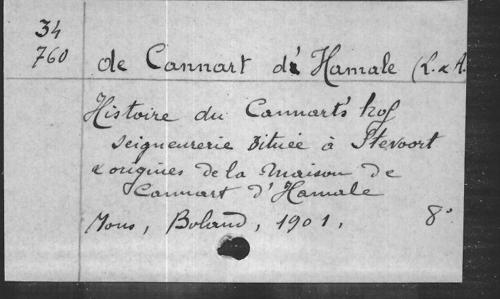 34
760
de Cannart d'Hamale (L. & A.
Histoire du Cannart's hof
seigneurerie située à Stevoort
& origines de la Maison de
Cannart d'Hamale
Mons, Boland, 1901, 8°